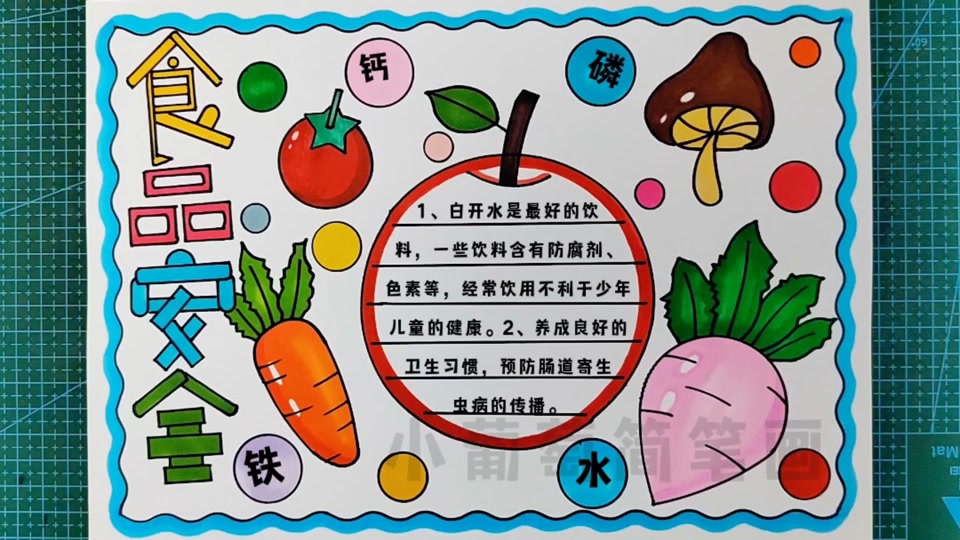 食品安全
钙
磷
1、白开水是最好的饮
料，一些饮料含有防腐剂、
色素等，经常饮用不利于少年
儿童的健康。2、养成良好的
卫生习惯，预防肠道寄生
虫病的传播。
铁
水
小葡萄简笔画
60
Mat